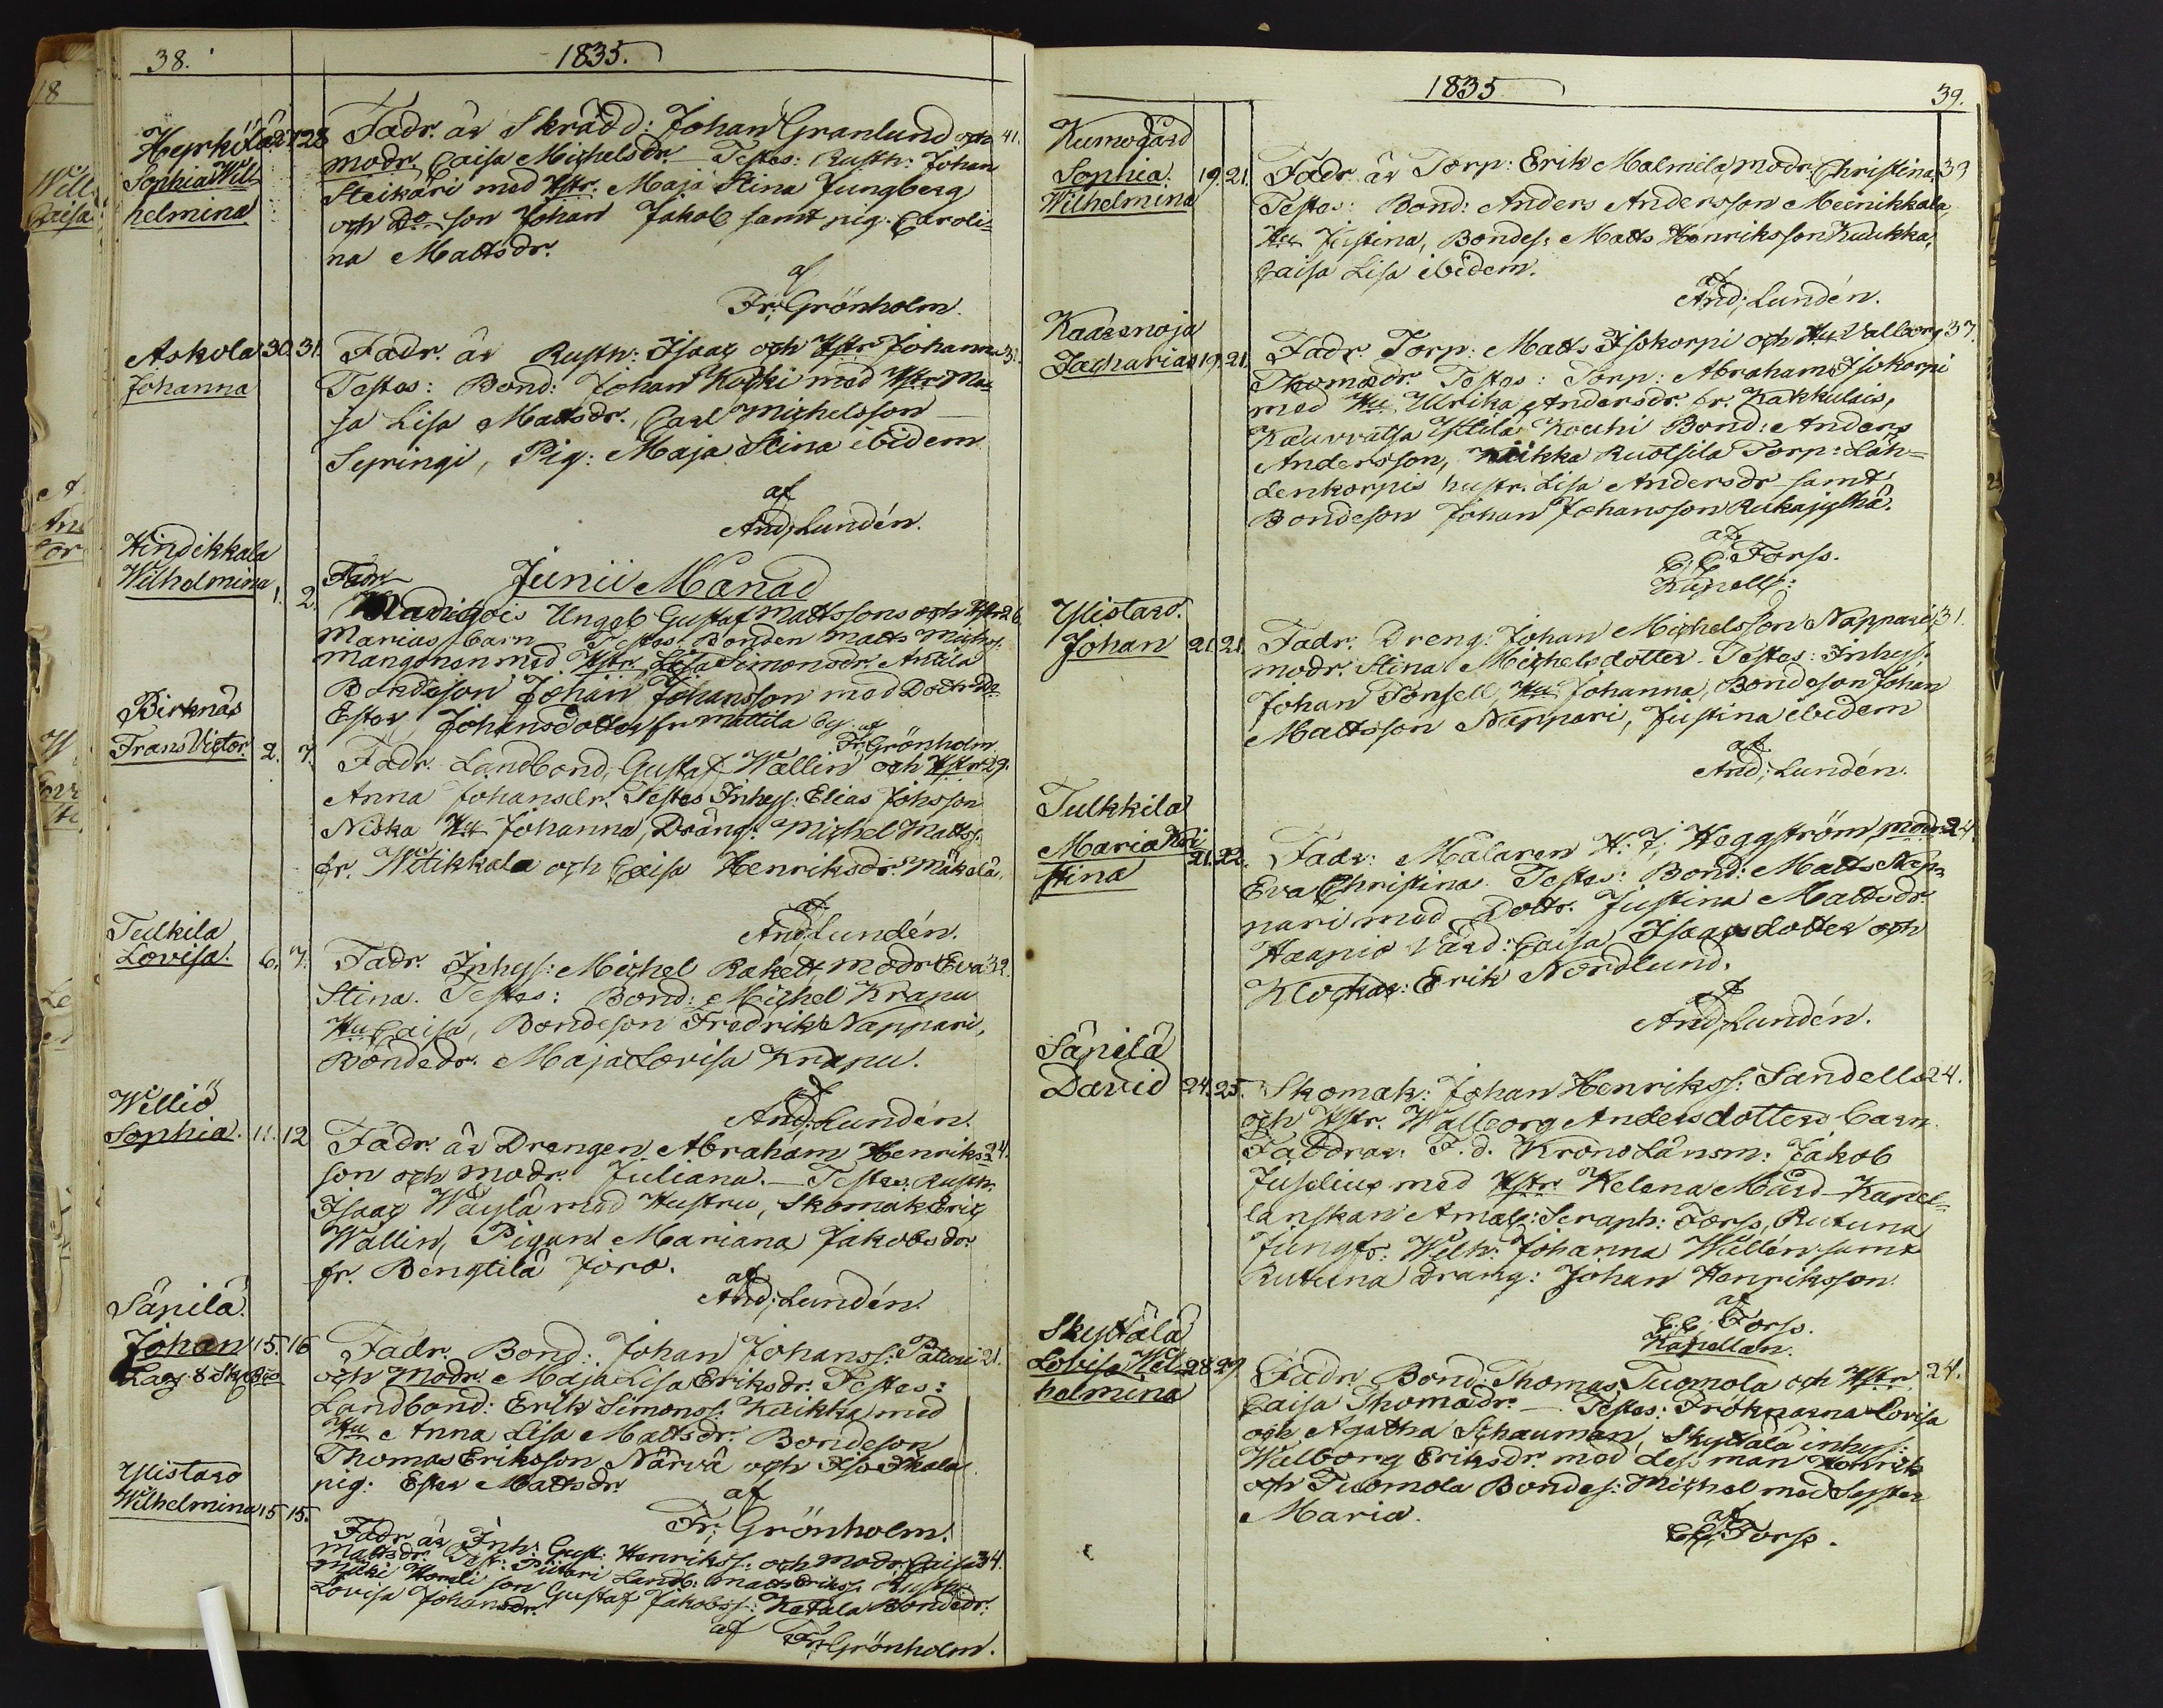 38.
1835.
Heyrkilä 27 28 Fadr. är Skrädd: Johan Granlund och 41.
Sophia Wil- modr. Caisa Michelsdr. Testes: Rusth: Johan
helmina Steikäri med Hstr. Maja Stina Jungberg
och Do son Johan Jakob samt pig: Caroli=
na Mattsdr.
af
Fr: Grönholm.
Askola 30. 31. Fadr. är Rusth: Isaac och Hstr Johanna 31.
Johanna Testes: Bond: Johan Koski med Hstr Ma=
ja Lisa Mattsdr., Carl Michelsson
Sepringi, Pig: Maja Stina ibidem
af
And; Lundén.
Hindikkala
Junii Månad
Wilhelmina 1. 2. Fadr
Ungeb Gustaf Mattssons och Hstr 26.
Marias barn Testes Bonden Matts Michss.
Mangonen med Hstr. Lisa Simonsdr. Anttila
Bondeson Johan Johansson med Dottr
Ester Johansdotter fr Mattila by: af
Fr; Grönholm.
Birknäs
Frans Victor. 2. 7. Fadr. Landbond; Gustaf Wallin och Hstr 29.
Anna Johansdr. Testes Inhys: Elias Johsson
Niska Hu Johanna, Dräng: Michel Matts:
fr. Witikkala och Caisa Henriksdr. Mäkelä.
af
And; Lundén.
Tulkila
Lovisa. 6. 7. Fadr. Inhys: Michel Rakett, modr Eva 32.
Stina. Testes: Bond: Michel Krapu
Hu Caisa, Bondeson Fredrik Nappari,
Böndedr. Maja Lovisa Krapu.
af
And; Lundén.
Williö
Sophia. 11. 12 Fadr. är Drengen Abraham Henriks 24.
son och modr. Juliana. Testes. Rusth:
Isaac Wäylä med Hustru, Skomak Eric
Wallin, Pigan Mariana Jakobsdr.
fr. Bengtilä Joro.
af
And; Lundén.
Säpilä.
Johan 15. 16 Fadr. Bond: Johan Johanss: Paturi 21.
och modr. Maja Lisa Eriksdr. Testes:
Landbond: Erik Simonss: Kaikka med
Hu Anna Lisa Mattsdr. Bondeson
Thomas Eriksson Närvä och Iso Ikala
pig: Ester Mattsdr.
af
Fr; Grönholm.
Ylistaro
Wilhelmina 15 15. Fadr är Inh: Gust: Henrikss: och modr. Caisa 34.
Mattsdr. Test: Piitari Landb: Matts Erikss. Rusth:
son Gustaf Jakobss: Ketala Bondedr:
Lovisa Johansdr.
af
Fr; Grönholm.
1835
39.
Kumogård
Sophia. 19. 21. Fadr är Torp: Erik Malmila, modr. Christina. 33
Wilhelmina Testes: Bond: Anders Andersson Meinikkala
Hu Justina, Bondes: Matts Henriksson Kuukka,
Caisa Lisa ibidem.
af
And; Lundén.
Kaasmoja
Zacharias 19. 21. Fadr. Torp: Matts Isokorpi och Hu Valborg 37.
Thomædr. Testes: Torp: Abraham Isokorpi
med Hu Ulrika Andersdr. fr. Kakkulais,
Kauvvatsa Yttilä Kouhi Bond: Anders
Andersson, Kukka Ruotsila Torp: Läh=
denkorpis hustr. Lisa Andersdr samt
Bondeson Johan Johansson Rukajylhä.
af
C. C. Forss.
Kapell:
Ylistaro.
Johan 21. 21. Fadr. Dreng: Johan Michelsson Nappari 31.
modr. Stina Michelsdotter. Testes: Inhys:
Johan Fonsell, Hu Johanna, Bondeson Johan
Mattsson Nappari, Justina ibidem
af
And; Lundén.
Tulkkila
Maria Kri 21. 22. Fadr: Målaren H. J. Heggström modr 24.
stina Eva Christina. Testes: Bond: Matts Nap=
pari med Dottr. Justina Mattsdr.
Haapio Värd: Caisa Isaaksdotter och
Klockar: Erik Nordlund.
af
And; Lundén.
Säpilä
David 24. 25. Skomak: Johan Henrikss: Sandells 24.
och Hstr. Wallborg Andersdotters barn.
Faddrar. F. d. KronoLänsm: Jakob
Juselius med Hstr Helena Mård Kapel=
lanskan Amal: Seraph: Forss, Rutuna
Jungfr. Wilh: Johanna Wallén samt
Rutuna Dräng: Johan Henriksson.
af
C. C. Forss.
Kapellan.
Skyttälä
Lovisa Wil= 28. 29. Fadr. Bond: Thomas Tuomola och Hstr. 24.
helmina Caisa Thomædr. Testes: Fröknarna Lovisa
och Agatha Schauman, Skyttälä inhys:
Walborg Eriksdr. med dess man Henrik
och Tuomola Bondes: Michel med Syster
Maria.
af
C. C. Forss.